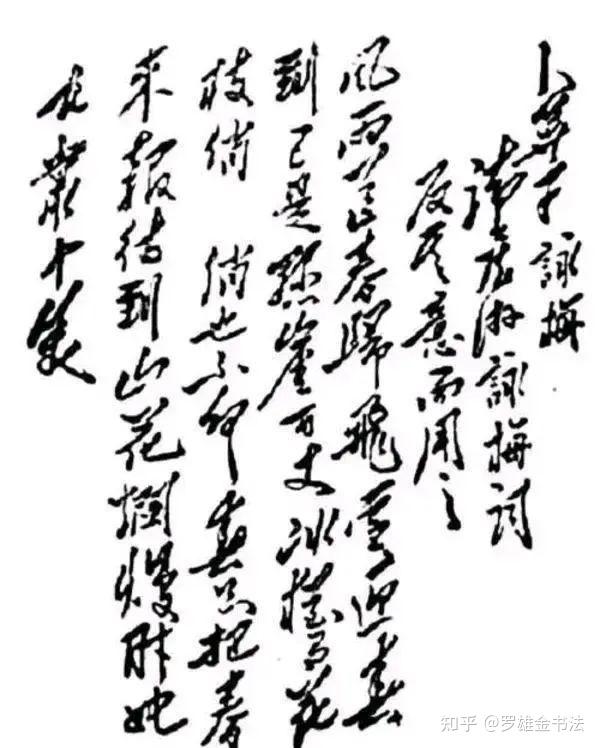 卜算子 詠梅
讀陸游詠梅詞
反其意而用之
風雨送春歸飛雪迎春
到已是懸崖百丈冰猶有花
枝俏 俏也不爭春只把春
來報待到山花爛熳時她
在叢中笑
知乎 @罗雄金书法